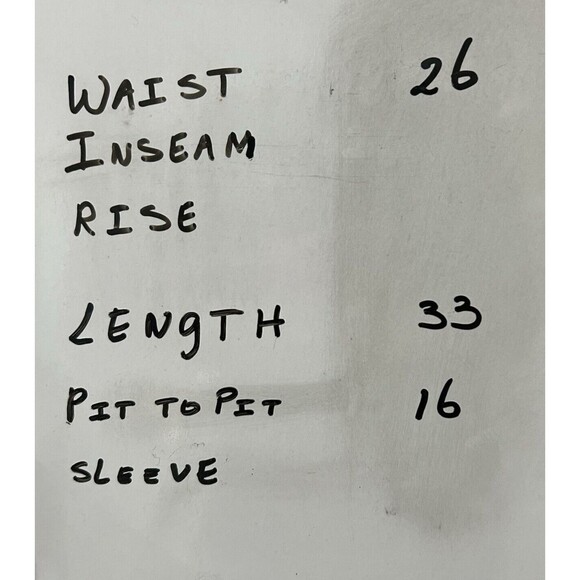 WAIST 26
INSEAM
RISE
LENGTH 33
PIT TO PIT 16
SLEEVE